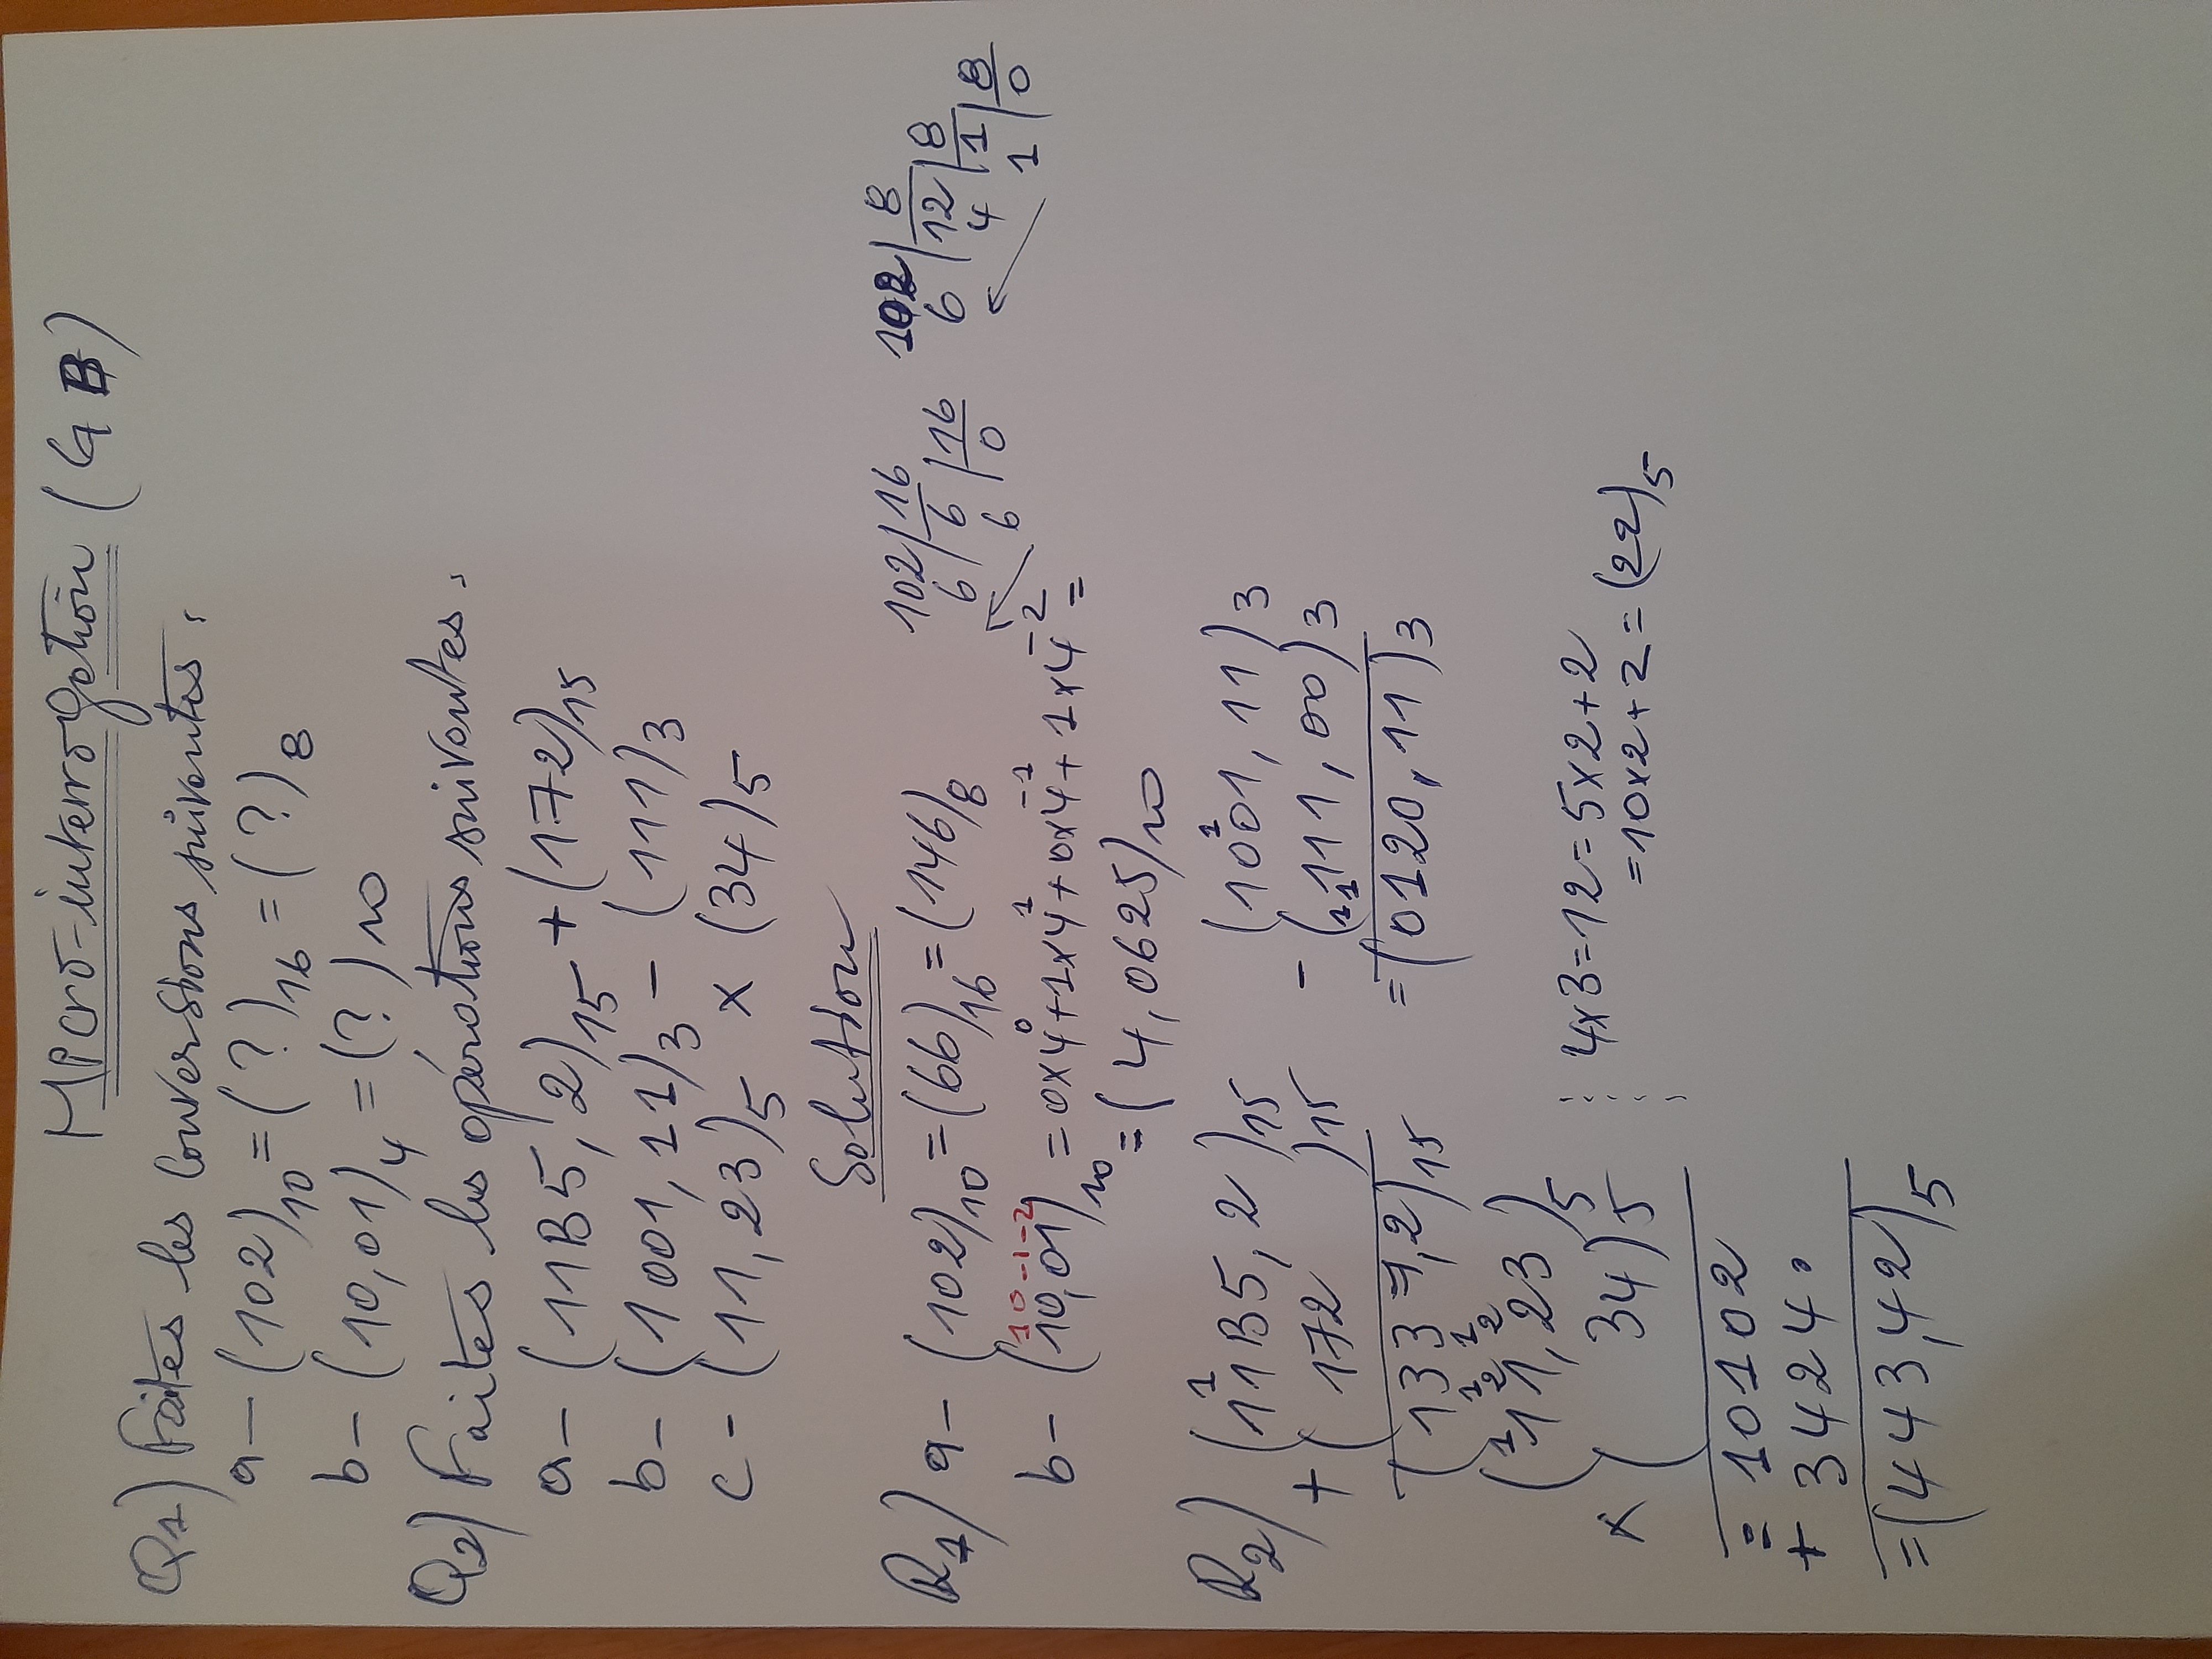 Micro-interrogation (G B)
Q1) Faites les conversions suivantes :
a- (102)10 = (?)16 = (?)8
b- (10,01)4 = (?)10
Q2) Faites les opérations suivantes.
a- (11B5,2)15 + (172)15
b- (1001,11)3 - (111)3
c- (11,23)5 x (34)5
Solution
R1) a- (102)10 = (66)16 = (146)8
102 | 16
6 | 6 | 16
6 | 0
102 | 8
6 | 12 | 8
4 | 1 | 8
1 | 0
1 0 -1 -2
b- (10,01)10 = 0x4^0 + 1x4^1 + 0x4^-1 + 1x4^-2 =
= (4,0625)10
R2) (11B5,2)15
+ (172)15
(1337,2)15
(1001,11)3
- (111,00)3
= (0120,11)3
(11,23)5
x (34)5
= 10102
+ 3424.
= (443,42)5
4x3=12=5x2+2
=10x2+2=(22)5